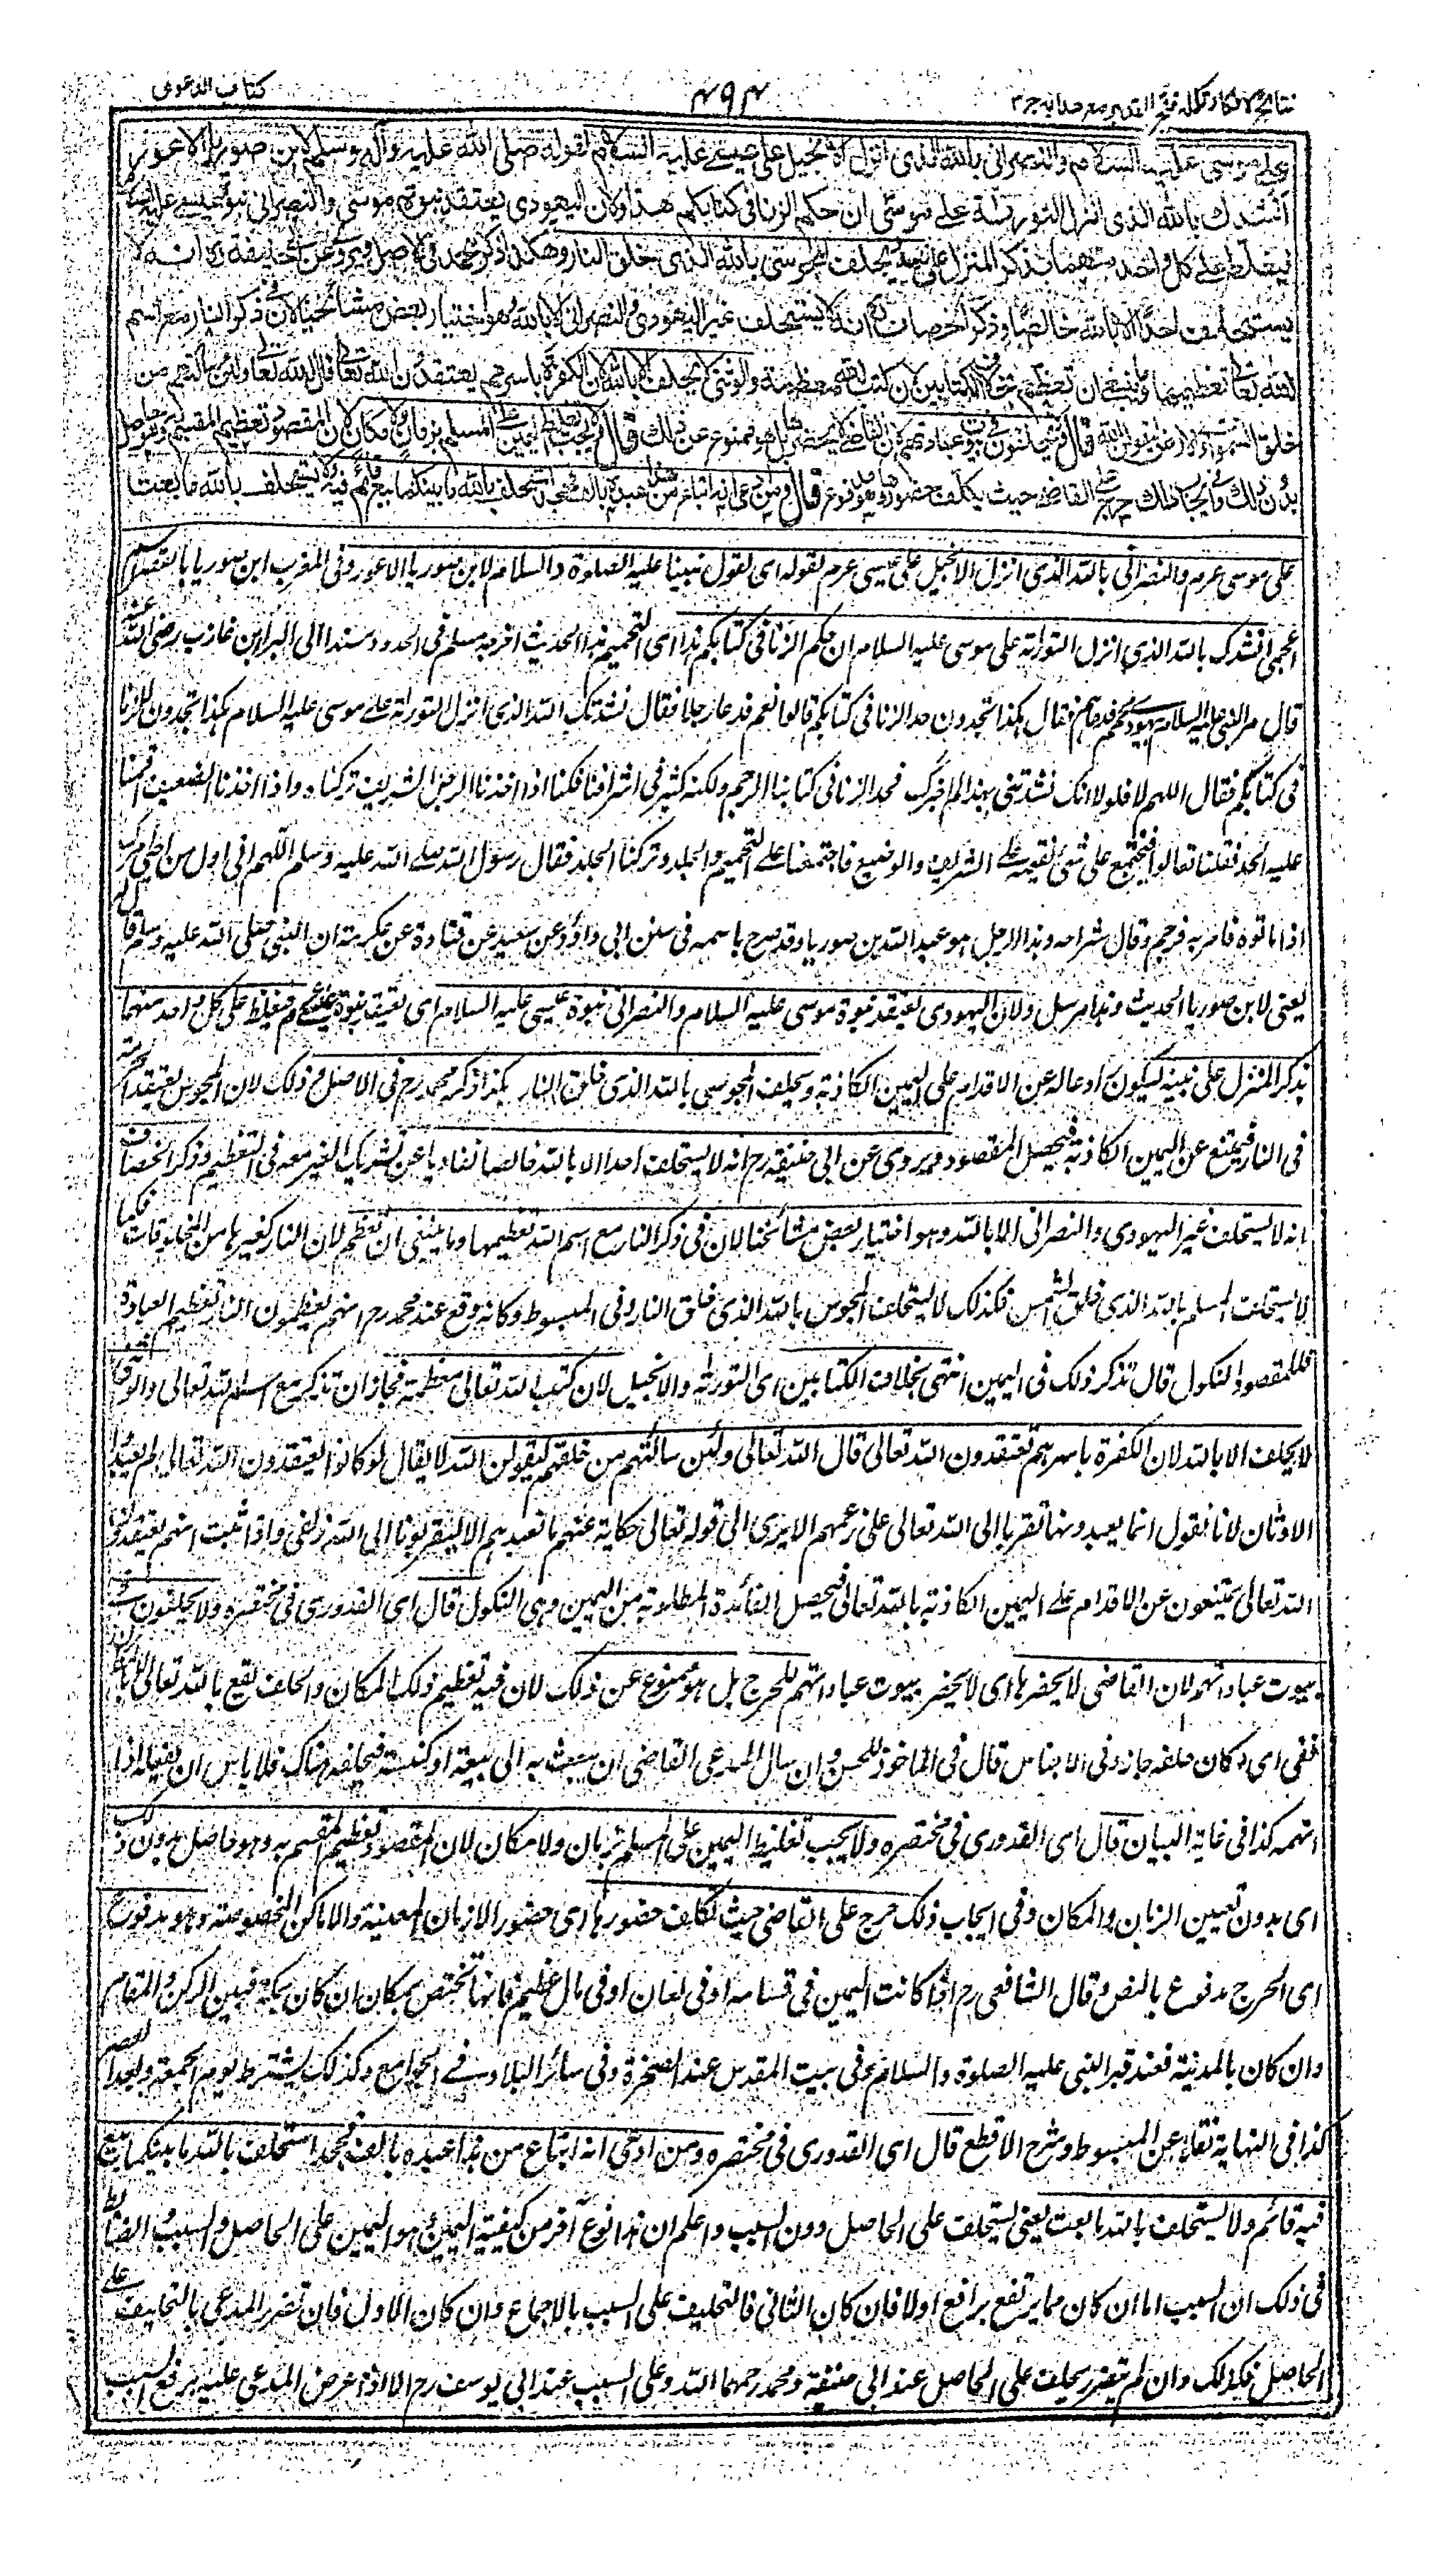 نتائج الافكار تكملة فتح القدير مع هداية ج ٣
٤٩٤
كتاب الدعوى
على موسى عليه السلام والنصرانى بالله الذى انزل الانجيل على عيسى عليه السلام لقوله صلى الله عليه وآله وسلم لابن صوريا الاعور
أنشدك بالله الذى انزل التورىة على موسى ان حكم الزنا فى كتابكم هذا ولان اليهودى يعتقد نبوة موسى والنصرانى نبوة عيسى عليه السلام
فيغلظ على كل واحد منهما بذكر المنزل على نبيه ويحلف المجوسى بالله الذى خلق النار وهكذا ذكر محمد فى الاصل ويروى عن ابى حنيفة رح انه لا
يستحلف احدا الا بالله خالصا وذكر الخصاف رح انه لا يستحلف غير اليهودى والنصرانى الا بالله وهو اختيار بعض مشائخنا لان فى ذكر النار مع اسم
الله تعالى تعظيمها وما ينبغى ان تعظم بخلاف الكتابين لان كتب الله معظمة والوثنى لا يحلف الا بالله لان الكفرة باسرهم يعتقدون الله تعالى قال الله تعالى ولئن سألتهم من
خلق السموات والارض ليقولن الله قال ولا يحلفون فى بيوت عبادتهم لان القاضى لا يحضرها بل هو ممنوع عن ذلك قال ولا يجب تغليظ اليمين على المسلم بزمان ولا مكان لان المقصود تعظيم المقسم به وهو حاصل
بدون ذلك وفى ايجاب ذلك حرج على القاضى حيث يكلف حضورها وهو مدفوع قال ومن ادعى انه ابتاع من هذا عبده بالف فجحد استحلف بالله ما بينكما بيع قائم فيه ولا يستحلف بالله ما بعت
على موسى عرم والنصرانى بالله الذى انزل الانجيل على عيسى عرم لقوله اى لقول نبينا عليه الصلوة والسلام لابن صوريا الاعور وفى المغرب ابن صوريا بالقصر اسم
اعجمى انشدك بالله الذى انزل التورىة على موسى عليه السلام ان حكم الزنا فى كتابكم هذا اى التحميم هذا الحديث اخرجه مسلم فى الحدود مسندا الى البراء بن عازب رضى الله عنه
قال مر النبى عليه السلام بيهودى محمم فدعاهم فقال هكذا تجدون حد الزنا فى كتابكم قالوا نعم فدعا رجلا فقال نشدتك الله الذى انزل التورىة على موسى عليه السلام هكذا تجدون حد الزنا
فى كتابكم فقال اللهم لا فلولا انك نشدتنى بهذا لم اخبرك نجد الزنا فى كتابنا الرجم ولكنه كثر فى اشرافنا فكنا اذا اخذنا الرجل الشريف تركناه واذا اخذنا الضعيف اقمنا
عليه الحد فقلنا تعالوا فنجتمع على شئ نقيمه على الشريف والوضيع فاجتمعنا على التحميم والجلد وتركنا الجلد فقال رسول الله صلى الله عليه وسلم اللهم انى اول من احيى امرك
اذ اماتوه فامر به فرجم وقال شراحه وهذا الرجل هو عبد الله بن صوريا وقد صرح باسمه فى سنن ابى داؤد عن سعيد عن قتادة عن عكرمة ان النبى صلى الله عليه وسلم قال له
يعنى لابن صوريا الحديث وهذا مرسل ولان اليهودى يعتقد نبوة موسى عليه السلام والنصرانى نبوة عيسى عليه السلام اى يعتقد نبوة عيسى عرم فيغلظ على كل واحد منهما
بذكر المنزل على نبيه ليكون ادعا له عن الاقدام على اليمين الكاذبة ويحلف المجوسى بالله الذى خلق النار هكذا ذكره محمد رح فى الاصل وذلك لان المجوس يعتقد الحرمة
فى النار فيمتنع عن اليمين الكاذبة فيحصل المقصود ويروى عن ابى حنيفة رح انه لا يستحلف احدا الا بالله خالصا تفاديا عن تشريك الغير معه فى التعظيم وذكر الخصاف
انه لا يستحلف غير اليهودى والنصرانى الا بالله وهو اختيار بعض مشائخنا لان فى ذكر النار مع اسم الله تعظيمها وما ينبغى ان تعظم لان النار كغيرها من المخلوقات فكما
لا يستحلف المسلم بالله الذى خلق الشمس فكذلك لا يستحلف المجوس بالله الذى خلق النار وفى المبسوط وكانه وقع عند محمد رح انهم يعظمون النار تعظيم العبادة
فللمقصود النكول قال تذكر ذلك فى اليمين انتهى بخلاف الكتابين اى التورىة والانجيل لان كتب الله تعالى معظمة فجاز ان تذكر مع اسم الله تعالى والوثنى
لا يحلف الا بالله لان الكفرة باسرهم يعتقدون الله تعالى قال الله تعالى ولئن سالتهم من خلقهم ليقولن الله لا يقال لو كانوا يعتقدون الله تعالى لم يعبدوا
الاوثان لانا نقول انما يعبدونها تقربا الى الله تعالى على زعمهم الا يرى الى قوله تعالى حكاية عنهم ما نعبدهم الا ليقربونا الى الله زلفى واذا ثبت انهم يعتقدون
الله تعالى يمتنعون عن الاقدام على اليمين الكاذبة بالله تعالى فيحصل الفائدة المطلوبة من اليمين وهى النكول قال اى القدورى فى مختصره ولا يحلفون فى
بيوت عباداتهم لان القاضى لا يحضرها اى لا يحضر بيوت عباداتهم للحرج بل هو ممنوع عن ذلك لان فيه تعظيم ذلك المكان والحلف تقع بالله تعالى لا بالمكان
ففى اى مكان حلفه جاز وفى الاجناس قال فى الماخوذ للحسن وان سال المدعى القاضى ان يبعث به الى بيعة او كنيسة فيحلفه هناك فلا باس ان يفعله اذا
اتهمه كذا فى غاية البيان قال اى القدورى فى مختصره ولا يجب تغليظ اليمين على المسلم بزمان ولا مكان لان المقصود تعظيم المقسم به وهو حاصل بدون ذلك
اى بدون تعيين الزمان والمكان وفى ايجاب ذلك حرج على القاضى حيث تكلف حضورها اى حضور الازمان المعينة والاماكن المخصوصة وهو مدفوع
اى الحرج مدفوع بالنص وقال الشافعى رح اذا كانت اليمين فى قسامة او فى لعان او فى مال عظيم فانها تختص بمكان ان كان بمكة فبين الركن والمقام
وان كان بالمدينة فعند قبر النبى عليه الصلوة والسلام وفى بيت المقدس عند الصخرة وفى سائر البلاد فى الجوامع وكذلك يشترط يوم الجمعة وبعد العصر
كذا فى النهاية نقلا عن المبسوط وشرح الاقطع قال اى القدورى فى مختصره ومن ادعى انه ابتاع من هذا عبده بالف فجحد استحلف بالله ما بينكما بيع
فيه قائم ولا يستحلف بالله ما بعت يعنى يستحلف على الحاصل دون السبب واعلم ان هذا نوع آخر من كيفية اليمين هو اليمين على الحاصل والسبب والضابط
فى ذلك ان السبب اما ان كان مما يرتفع برافع اولا فان كان الثانى فالتحليف على السبب بالاجماع وان كان الاول فان تضرر المدعى بالتحليف على
الحاصل فكذلك وان لم يتضرر يحلف على الحاصل عند ابى حنيفة ومحمد رحمهما الله وعلى السبب عند ابى يوسف رح الا اذا عرض المدعى عليه برفع السبب